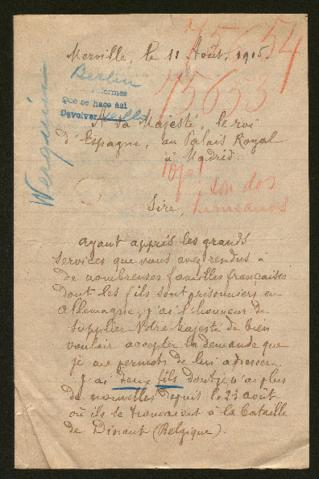 Merville, le 11 Août, 1915.
75654
75653
Berlin
Informes
Que se hace así
Devolver
Werquin
A Sa Majesté, le roi
d'Espagne, au Palais Royal
à Madrid.
Ojo!
son dos
hermanos
Sire,
Ayant appris les grands
services que vous avez rendus à
de nombreuses familles françaises
dont les fils sont prisonniers en
Allemagne, j'ai l'honneur de
supplier Votre Majesté de bien
vouloir accepter la demande que
je me permets de lui adresser.
J'ai deux fils dont je n'ai plus
de nouvelles depuis le 23 août
où ils se trouvaient à la bataille
de Dinant (Belgique).